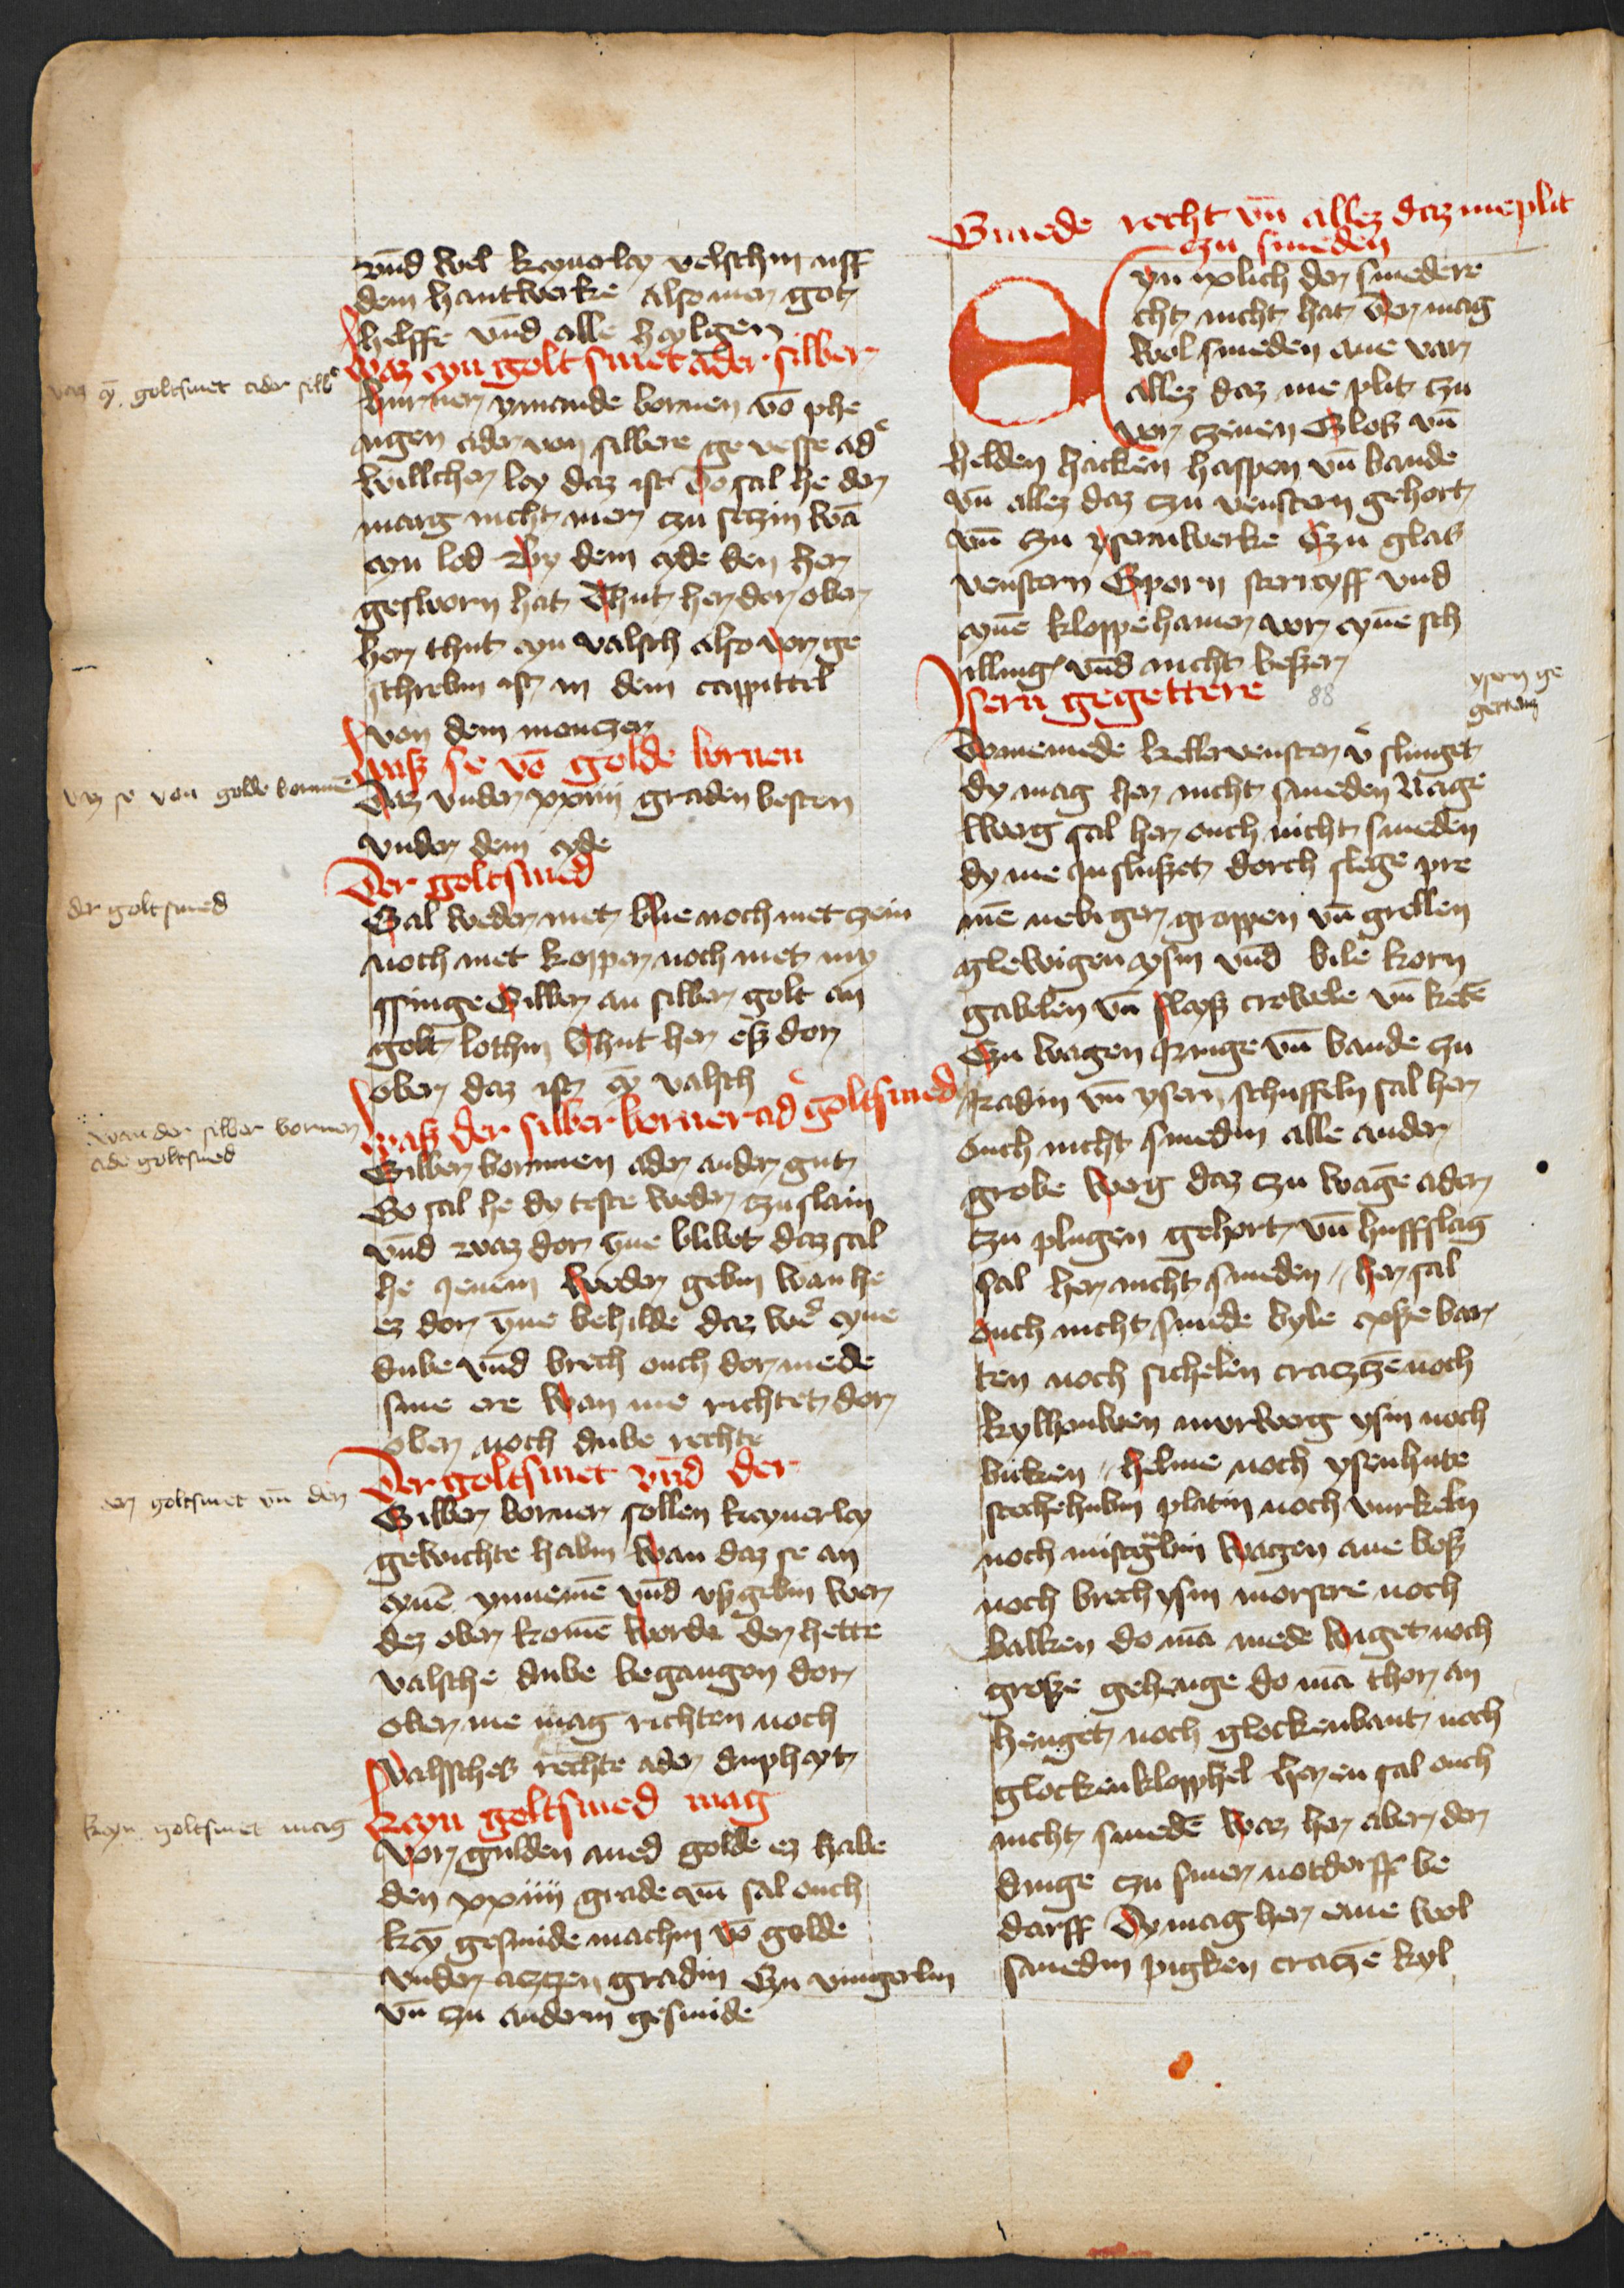 vnd wel keynerley velschin uff
dem hantwerke also mer got
helffe vnd alle heylgen
Waz eyn golt smet ader silber
burner ymande bornen vō phe
nigen ader von silbere ge vesse adͤ
willcher ley daz ist So sal he der
marg nicht mer czu seczin wā
eyn lod By dem eyde den her
gesworn hat Thut her dor ober
her thut eyn valsch also vor ge
schrebin ist in dem cappittel
von dem monczer
waß se vō golde bornen
Daz vnder xxiiij graden besten
vnder dem eyde
Der goltsmed
Sal weder met blie noch met czein
noch met kopper noch met my
ssinge Silber an silber golt an
golt lothin Thut her eß dor
ober daz ist eȳ valsch
waß der silber borner adͤ goltsmed
Silber bornnen ader ander gut
So sal he dy teste weder czuslain
vnd waz dor ȳne blibet daz sal
he jenem weder gebin wan he
ez dor ȳne behilde daz weͤ eyne
dube vnd brech ouch dor mede
sine ere wan me richtet dor
ober noch dube rechte
Der goltsmet vnd der
Silber borner sollen keynerley
gewichte habin wan daz se an
eynē ynnemē vnd vßgebin wer
dez ober komē worde der hette
valsche dube begangen dor
ober me mag richten noch
valssches rechte ader dupheyt
Keyn goltsmed mag
Vor gulden med golde ez habe
den xxiiij grade vn̄ sal ouch
keȳ gesmide machin vō golde
vnder aczzen gradin Czu vingerlin
vn̄ czu anderm gesmide
vaz eȳ goltsmet ader silbͤ
vaz se von golde bornnē
der goltsmed
wan der silber bornen
ade goltsmed
der goltsmet vn̄ der
keyn goltsmet mag
Smede recht vn̄ allez daz me plit
czu smeden
Eyn ixlich der smedere
cht nicht hat Der mag
wol smeden ane var
allez daz me plit czu
vor czenen Sloß vn̄
helden hacken haspen vn̄ bande
vn̄ allez daz czu venstern gehort
vn̄ czu ysernwerke Czu glas
venstern Sporn stericyff vnd
eynē kloppe hamer vor eynē sch
illing vnd nicht beßer
Isern gegettere
88
ysern ge
getterz
Domemede kellervenster vͦ slinget
dy mag her nicht smeden Nage
lwerg sal her ouch nicht smeden
dy me insluszet dorch slege pre
mē nebiger grappen vn̄ grellen
glewigen ysin vnd bile korn
gabelen vn̄ fleyß crowele vn̄ ketē
Czu wagen Ringe vn̄ bande czu
Radin vn̄ ysern schuffeln sal her
ouch nicht smedin alle ander
grobe werg daz czu wagē ader
czu plugen gehort vn̄ huffslag
sal her nicht smeden her sal
ouch nicht smede byle exße bar
ten noch sichelen craczzē noch
kylhouwen murwerg ysin noch
bicken helme noch ysenhute
stechehubin platin noch vurkeln
noch mistgabin wagen ane boß
noch brech ysin morsere noch
balken do mā mede waget noch
große gehenge do mā thor an
henget noch glockenbant noch
glockenkloppfel her en sal ouch
nicht smedē waz her aber der
dinge czu siner notdorff be
darff Dy mag her eme wol
smedin pigken craczē kyl